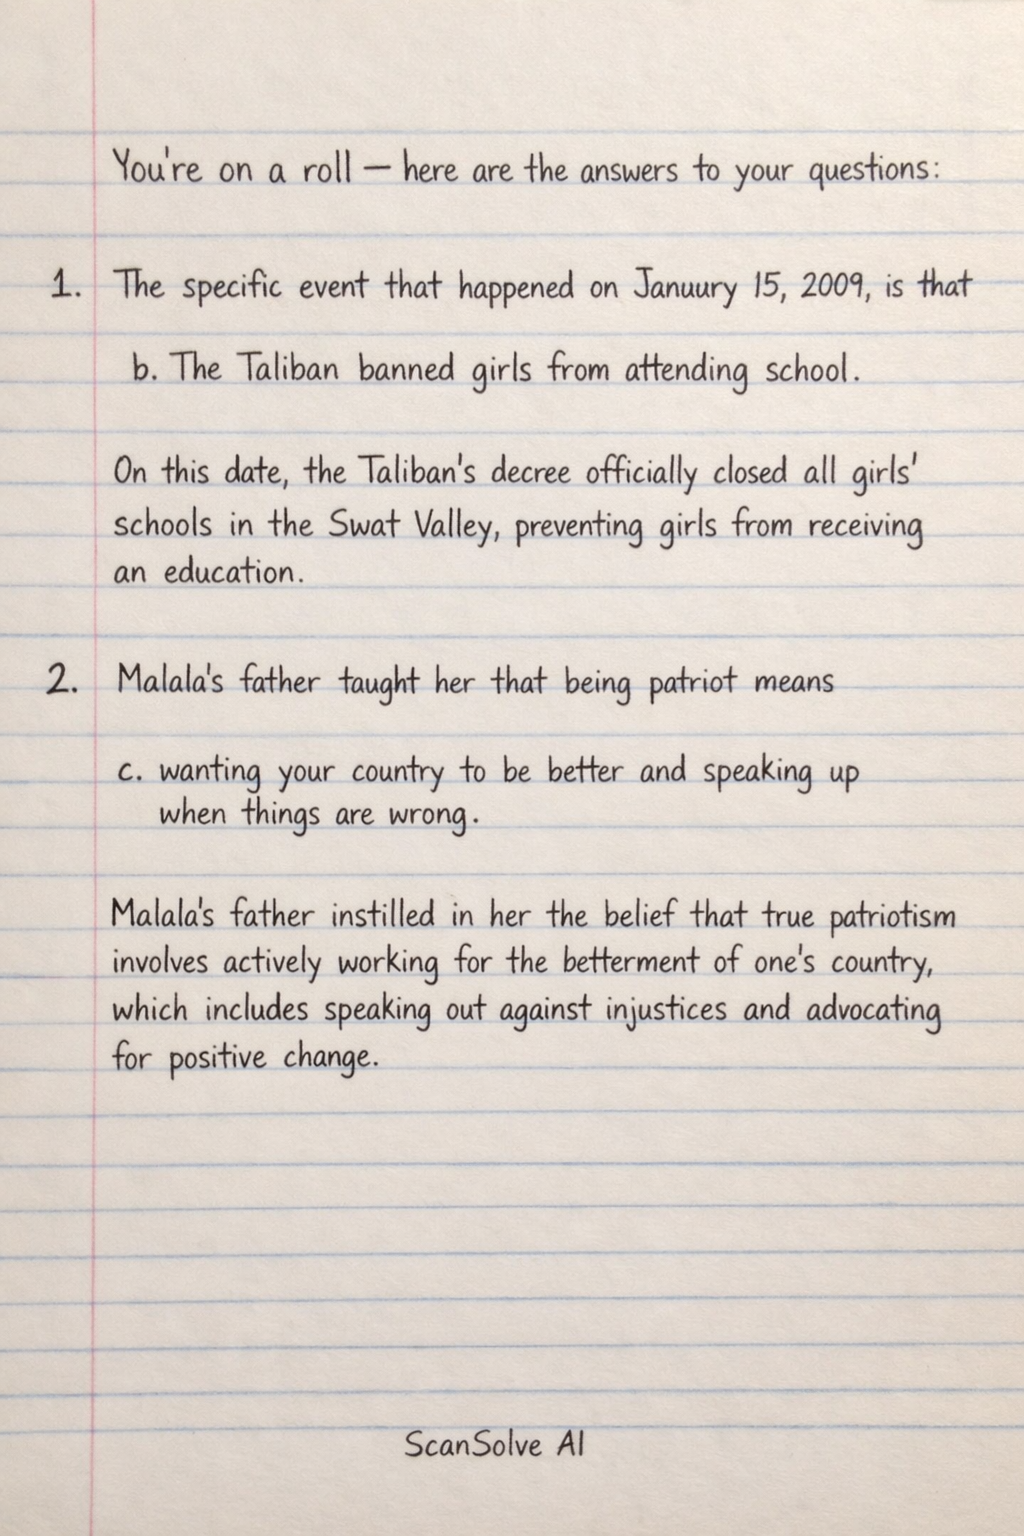 You're on a roll — here are the answers to your questions:
1. The specific event that happened on Januury 15, 2009, is that
b. The Taliban banned girls from attending school.
On this date, the Taliban's decree officially closed all girls'
schools in the Swat Valley, preventing girls from receiving
an education.
2. Malala's father taught her that being patriot means
c. wanting your country to be better and speaking up
when things are wrong.
Malala's father instilled in her the belief that true patriotism
involves actively working for the betterment of one's country,
which includes speaking out against injustices and advocating
for positive change.
ScanSolve AI